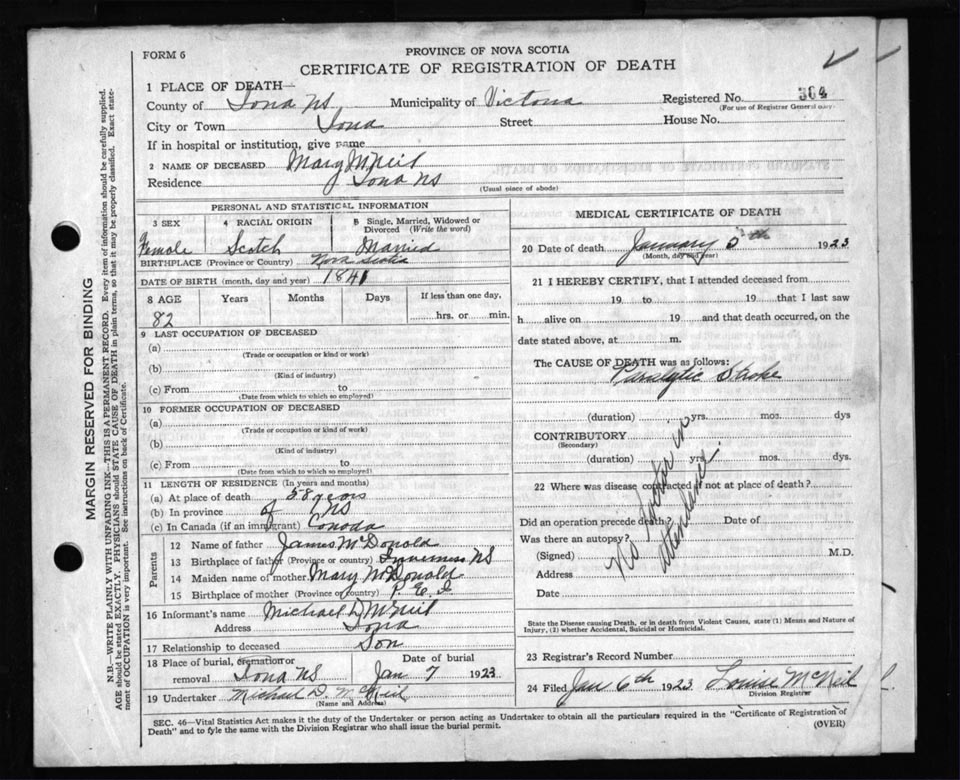 FORM 6
PROVINCE OF NOVA SCOTIA
CERTIFICATE OF REGISTRATION OF DEATH
MARGIN RESERVED FOR BINDING
N.B.—WRITE PLAINLY WITH UNFADING INK—THIS IS A PERMANENT RECORD. Every item of information should be carefully supplied.
AGE should be stated EXACTLY. PHYSICIANS should STATE CAUSE OF DEATH in plain terms, so that it may be properly classified. Exact statement of OCCUPATION is very important. See instructions on back of Certificate.
1 PLACE OF DEATH—
County of Iona NS Municipality of Victoria Registered No. 304
(For use of Registrar General only)
City or Town Iona Street House No.
If in hospital or institution, give name
2 NAME OF DECEASED Mary McNeil
Residence Iona NS
(Usual place of abode)
PERSONAL AND STATISTICAL INFORMATION
3 SEX 4 RACIAL ORIGIN 5 Single, Married, Widowed or Divorced (Write the word)
Female Scotch Married
BIRTHPLACE (Province or Country) Nova Scotia
DATE OF BIRTH (month, day and year) 1841
8 AGE Years Months Days If less than one day,
82 hrs. or min.
9 LAST OCCUPATION OF DECEASED
(a)
(Trade or occupation or kind or work)
(b)
(Kind of industry)
(c) From to
(Date from which to which so employed)
10 FORMER OCCUPATION OF DECEASED
(a)
(Trade or occupation or kind of work)
(b)
(Kind of industry)
(c) From to
(Date from which to which so employed)
11 LENGTH OF RESIDENCE (In years and months)
(a) At place of death 58 years
(b) In province of NS
(c) In Canada (if an immigrant) Canada
Parents
12 Name of father James McDonald
13 Birthplace of father (Province or country) Inverness NS
14 Maiden name of mother Mary McDonald
15 Birthplace of mother (Province or country) P. E. I
16 Informant's name Michael D McNeil
Address Iona
17 Relationship to deceased Son
18 Place of burial, cremation or removal Iona NS Date of burial Jan 7 1923
19 Undertaker Michael D. McNeil
(Name and Address)
MEDICAL CERTIFICATE OF DEATH
20 Date of death January 5th 1923
(Month, day and year)
21 I HEREBY CERTIFY, that I attended deceased from
19 to 19 that I last saw
h alive on 19 and that death occurred, on the
date stated above, at m.
The CAUSE OF DEATH was as follows:
Paralytic Stroke
(duration) yrs. mos. dys
CONTRIBUTORY
(Secondary)
(duration) yrs. mos. dys.
22 Where was disease contracted if not at place of death?
Did an operation precede death? Date of
Was there an autopsy?
(Signed) M.D.
Address
Date
No Doctor in attendance
State the Disease causing Death, or in death from Violent Causes, state (1) Means and Nature of Injury, (2) whether Accidental, Suicidal or Homicidal.
23 Registrar's Record Number
24 Filed Jan 6th 1923 Louise McNeil
Division Registrar
SEC. 46—Vital Statistics Act makes it the duty of the Undertaker or person acting as Undertaker to obtain all the particulars required in the "Certificate of Registration of
Death" and to fyle the same with the Division Registrar who shall issue the burial permit. (OVER)